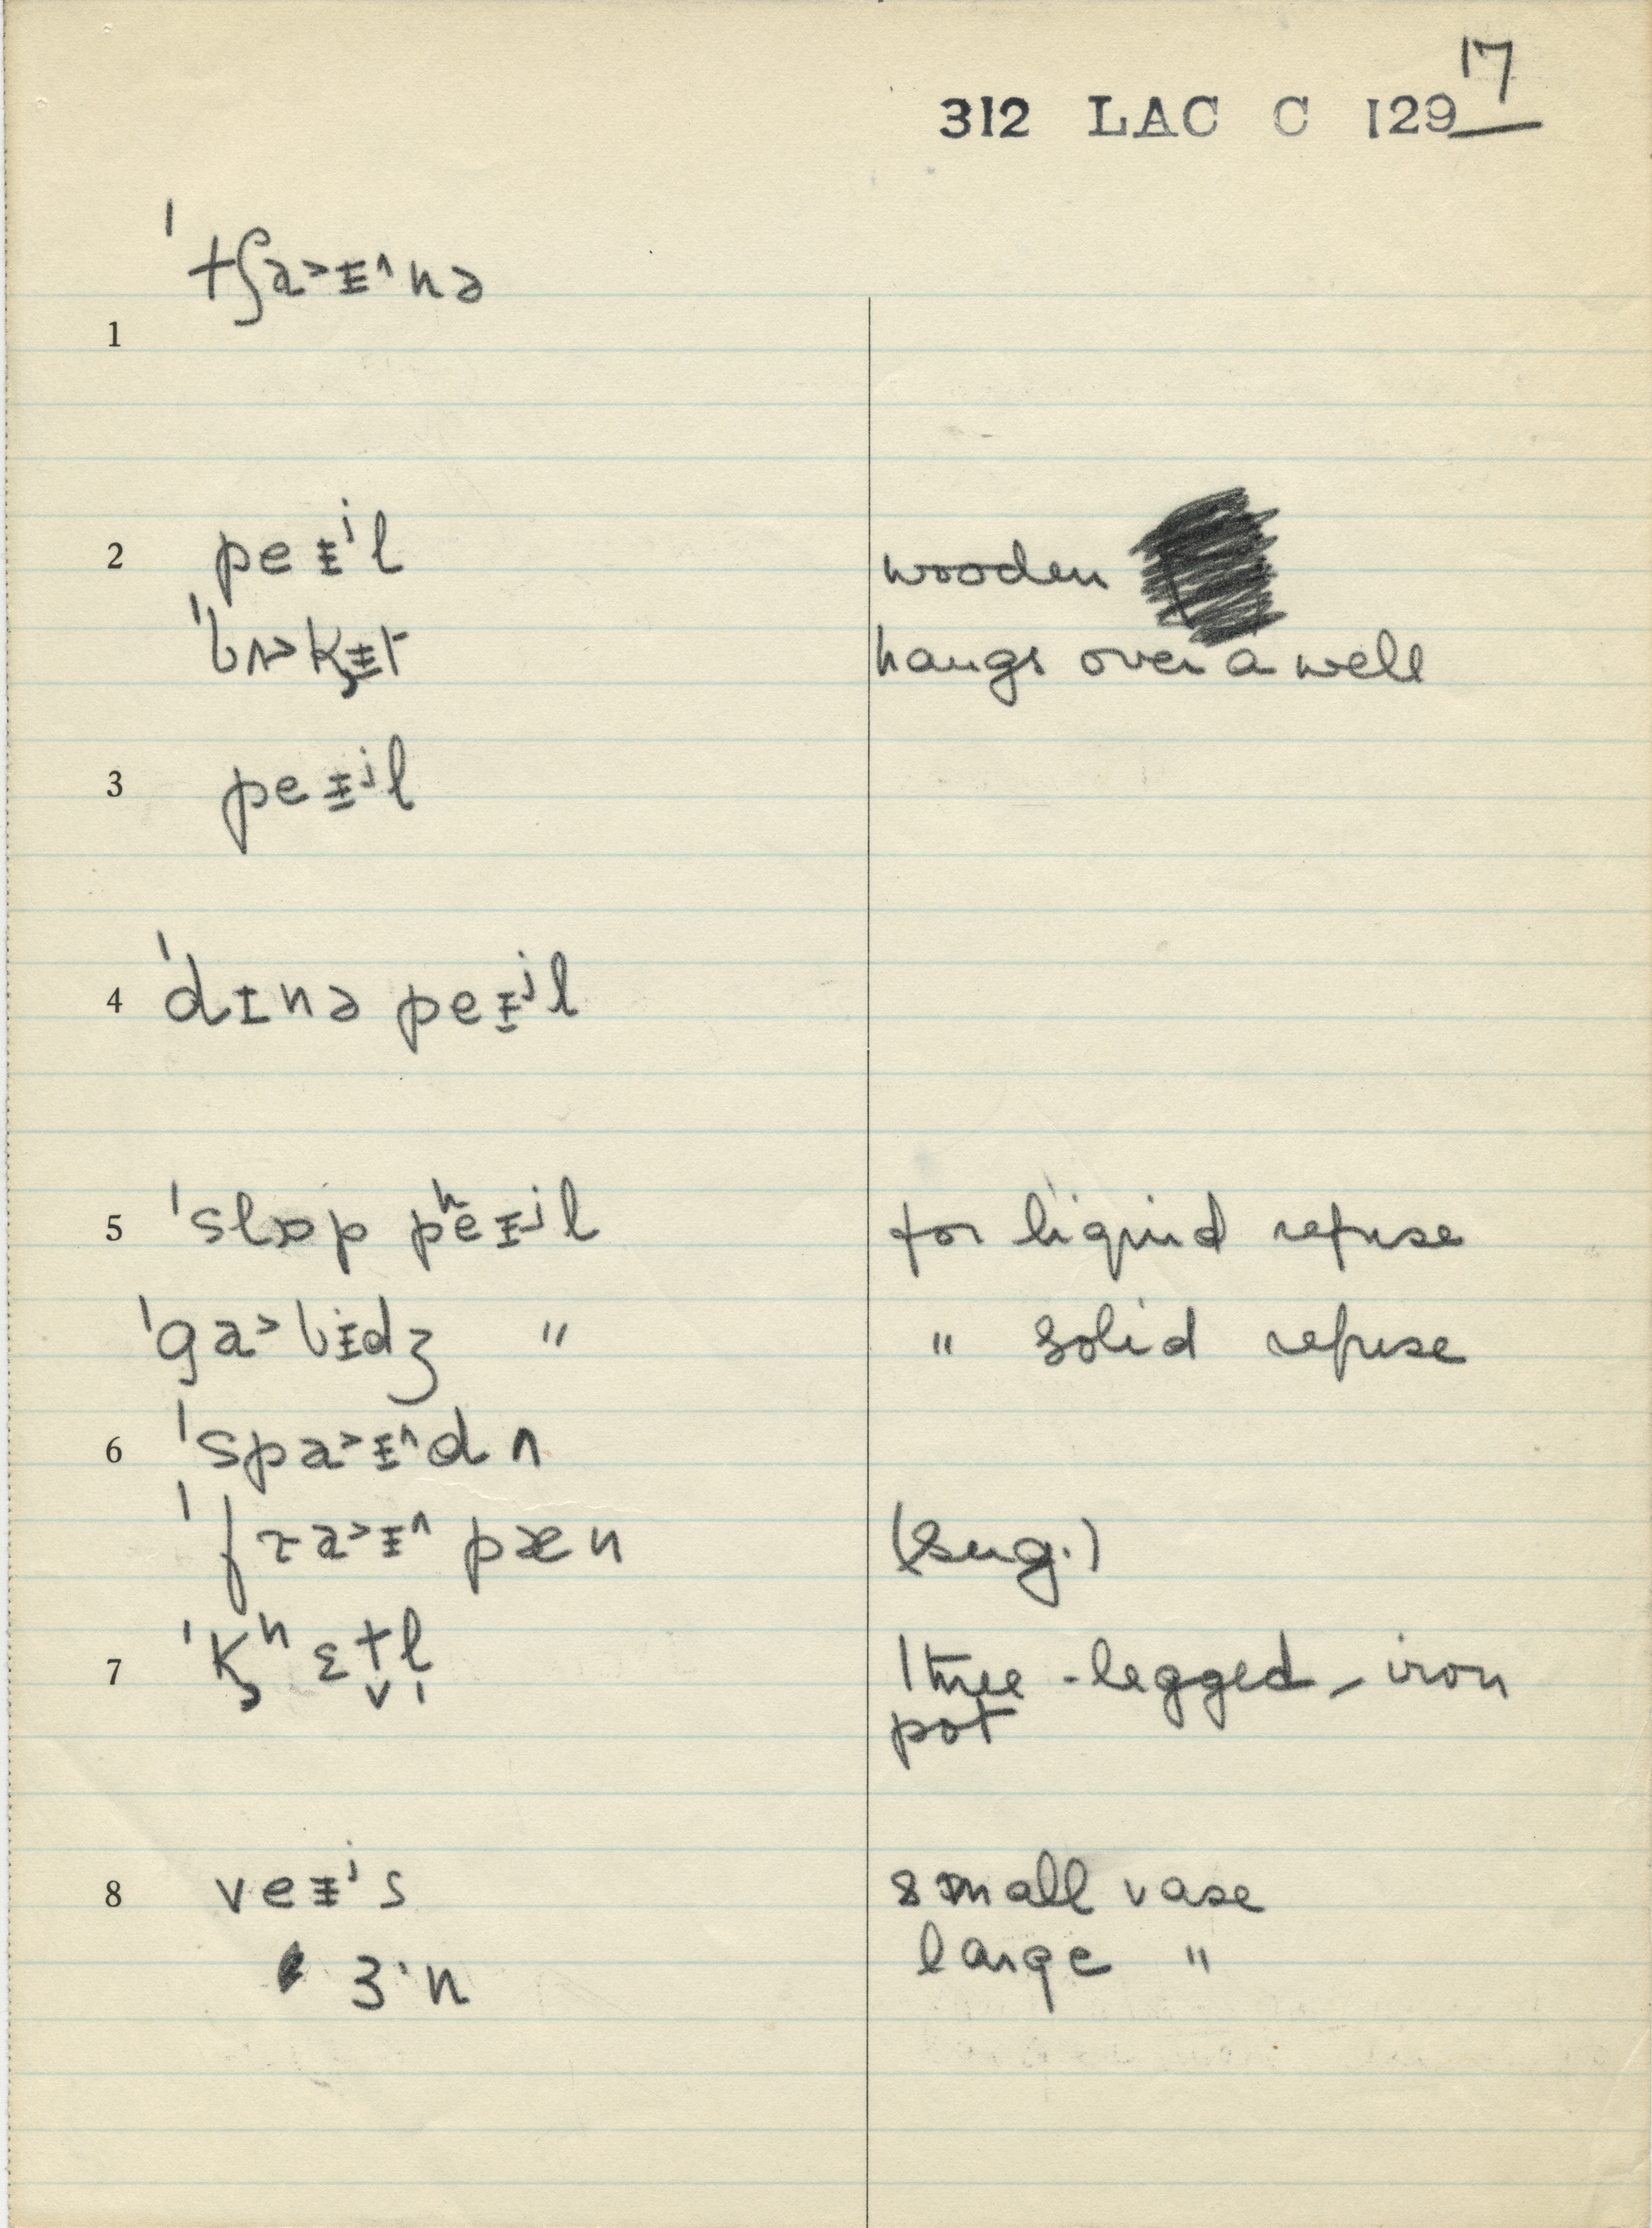 17
312 LAC C 129
ˈtʃa˃ɪ̵^nə
1
2 peɪ̵ʲl wooden
ˈbʌ˃k̡ɪ̵t hangs over a well
3 peɪ̵ʲl
4 ˈdɪnə peɪ̵ʲl
5 ˈslɒp pʰeɪ̵ʲl for liquid refuse
ˈga˃bɪ̵dʒ " " solid refuse
6 ˈspa˃ɪ̵^dʌ
ˈfɾa˃ɪ̵^ pæn (sug.)
7 ˈk̡ʰɛt̬l̩ three-legged-iron
pot
8 veɪ̵ʲs small vase
ɜ·n large "